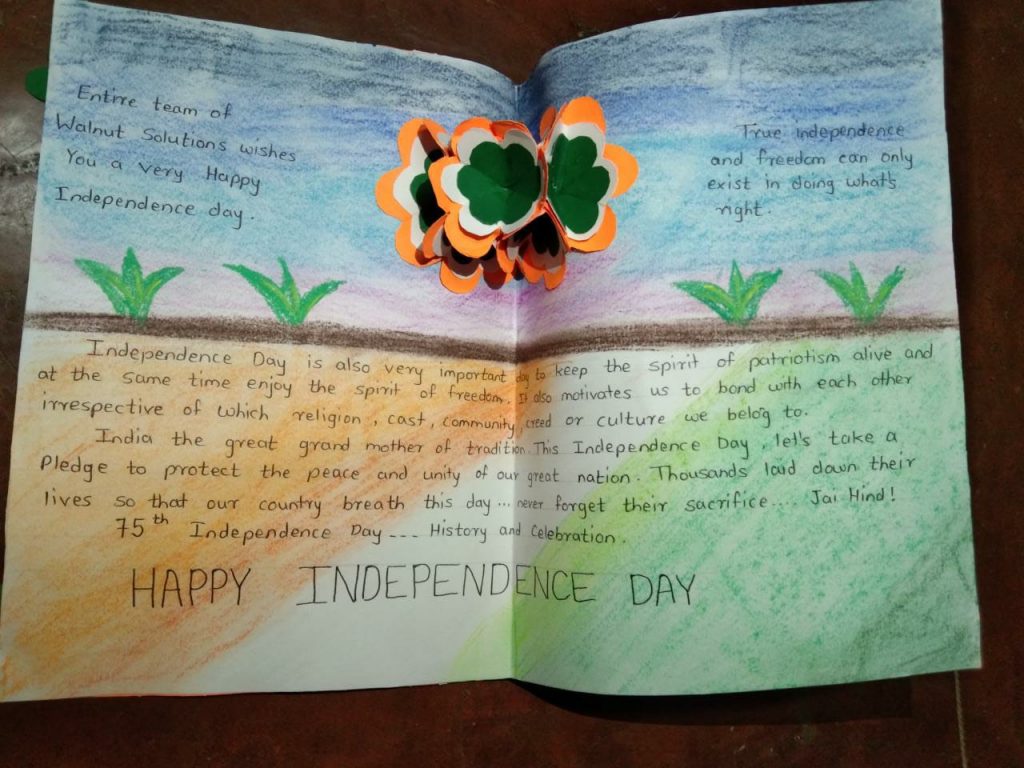 Entire team of
Walnut Solutions wishes
You a very Happy
Independence day.
True independence
and freedom can only
exist in doing what's
right.
Independence Day is also very important day to keep the spirit of patriotism alive and
at the same time enjoy the spirit of freedom. It also motivates us to bond with each other
irrespective of which religion, cast, community, creed or culture we belog to.
India the great grand mother of tradition. This Independence Day, let's take a
Pledge to protect the peace and unity of our great nation. Thousands laid down their
lives so that our country breath this day... never forget their sacrifice..... Jai Hind!
75th Independence Day --- History and Celebration.
HAPPY INDEPENDENCE DAY